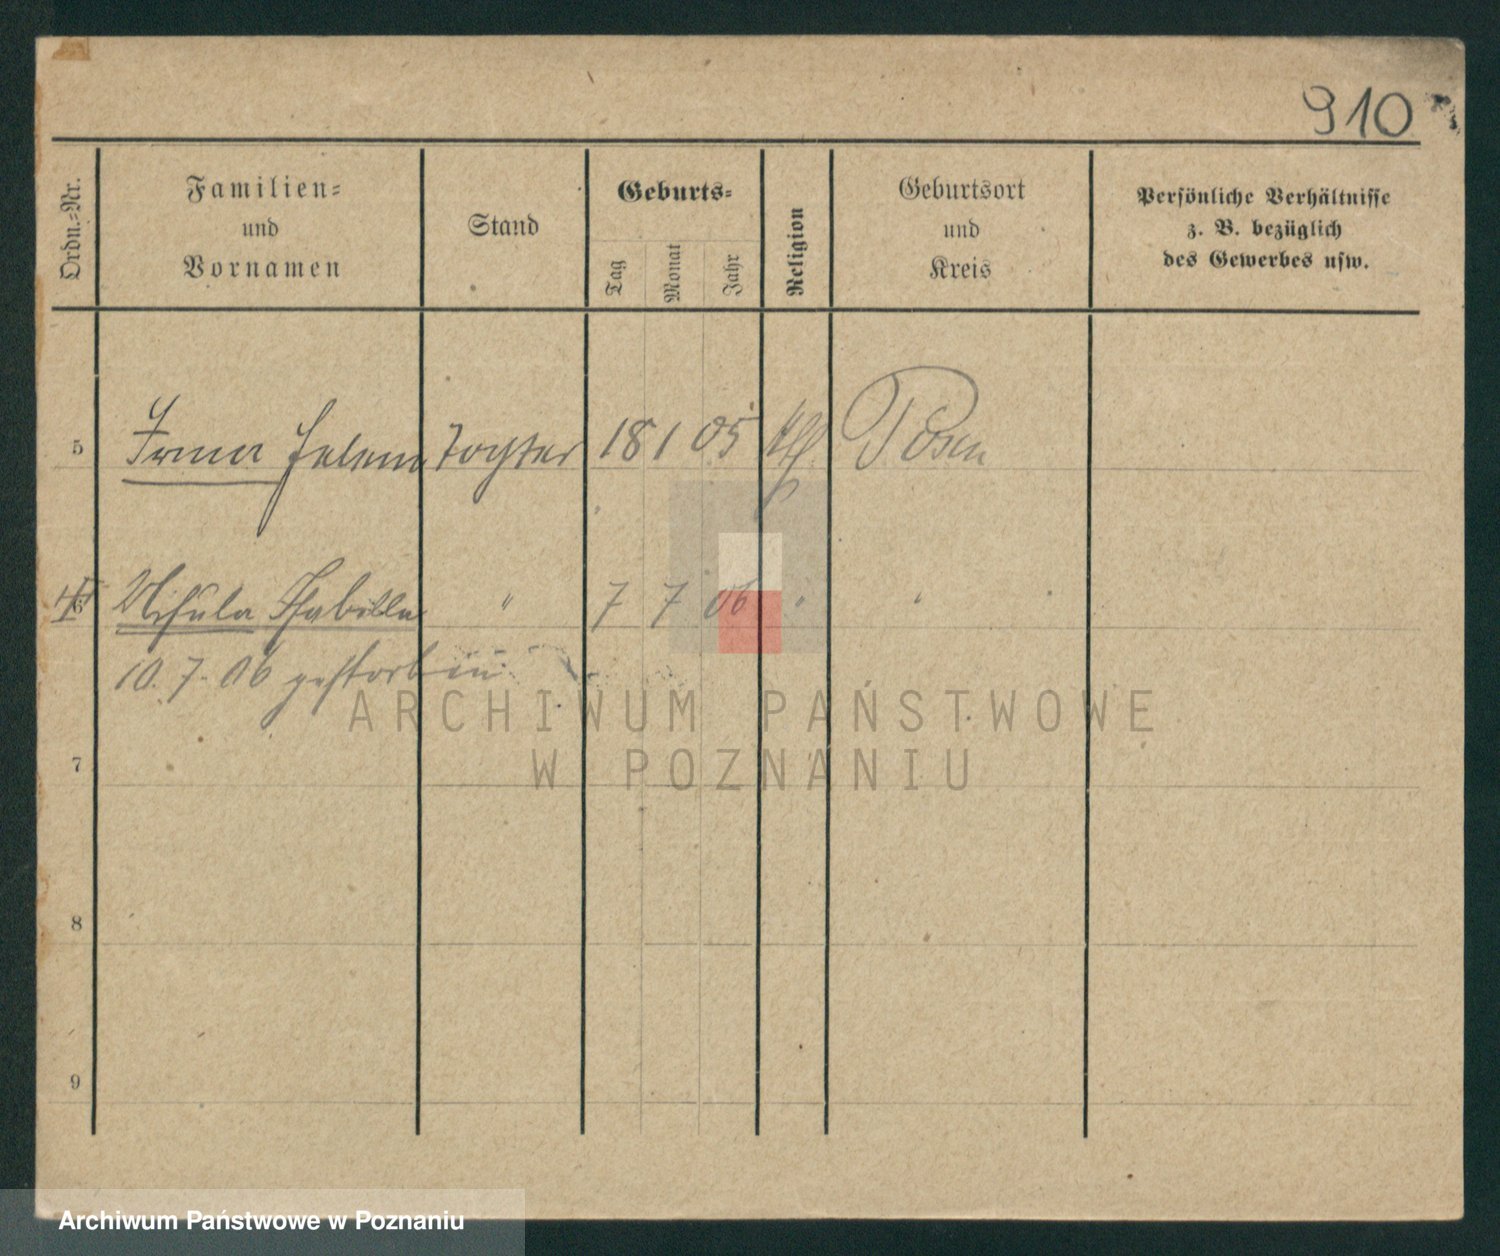 910
Ordn.-Nr.
Familien-
und
Vornamen
Stand
Geburts-
Tag
Monat
Jahr
Religion
Geburtsort
und
Kreis
Persönliche Verhältnisse
z. B. bezüglich
des Gewerbes usw.
5 Irma Helena Tochter 18 1 05 kth Posen
6 Ursula " 7 7 06 " "
10. 7. 06 gestorben
7
8
9
ARCHIWUM PAŃSTWOWE
W POZNANIU
Archiwum Państwowe w Poznaniu